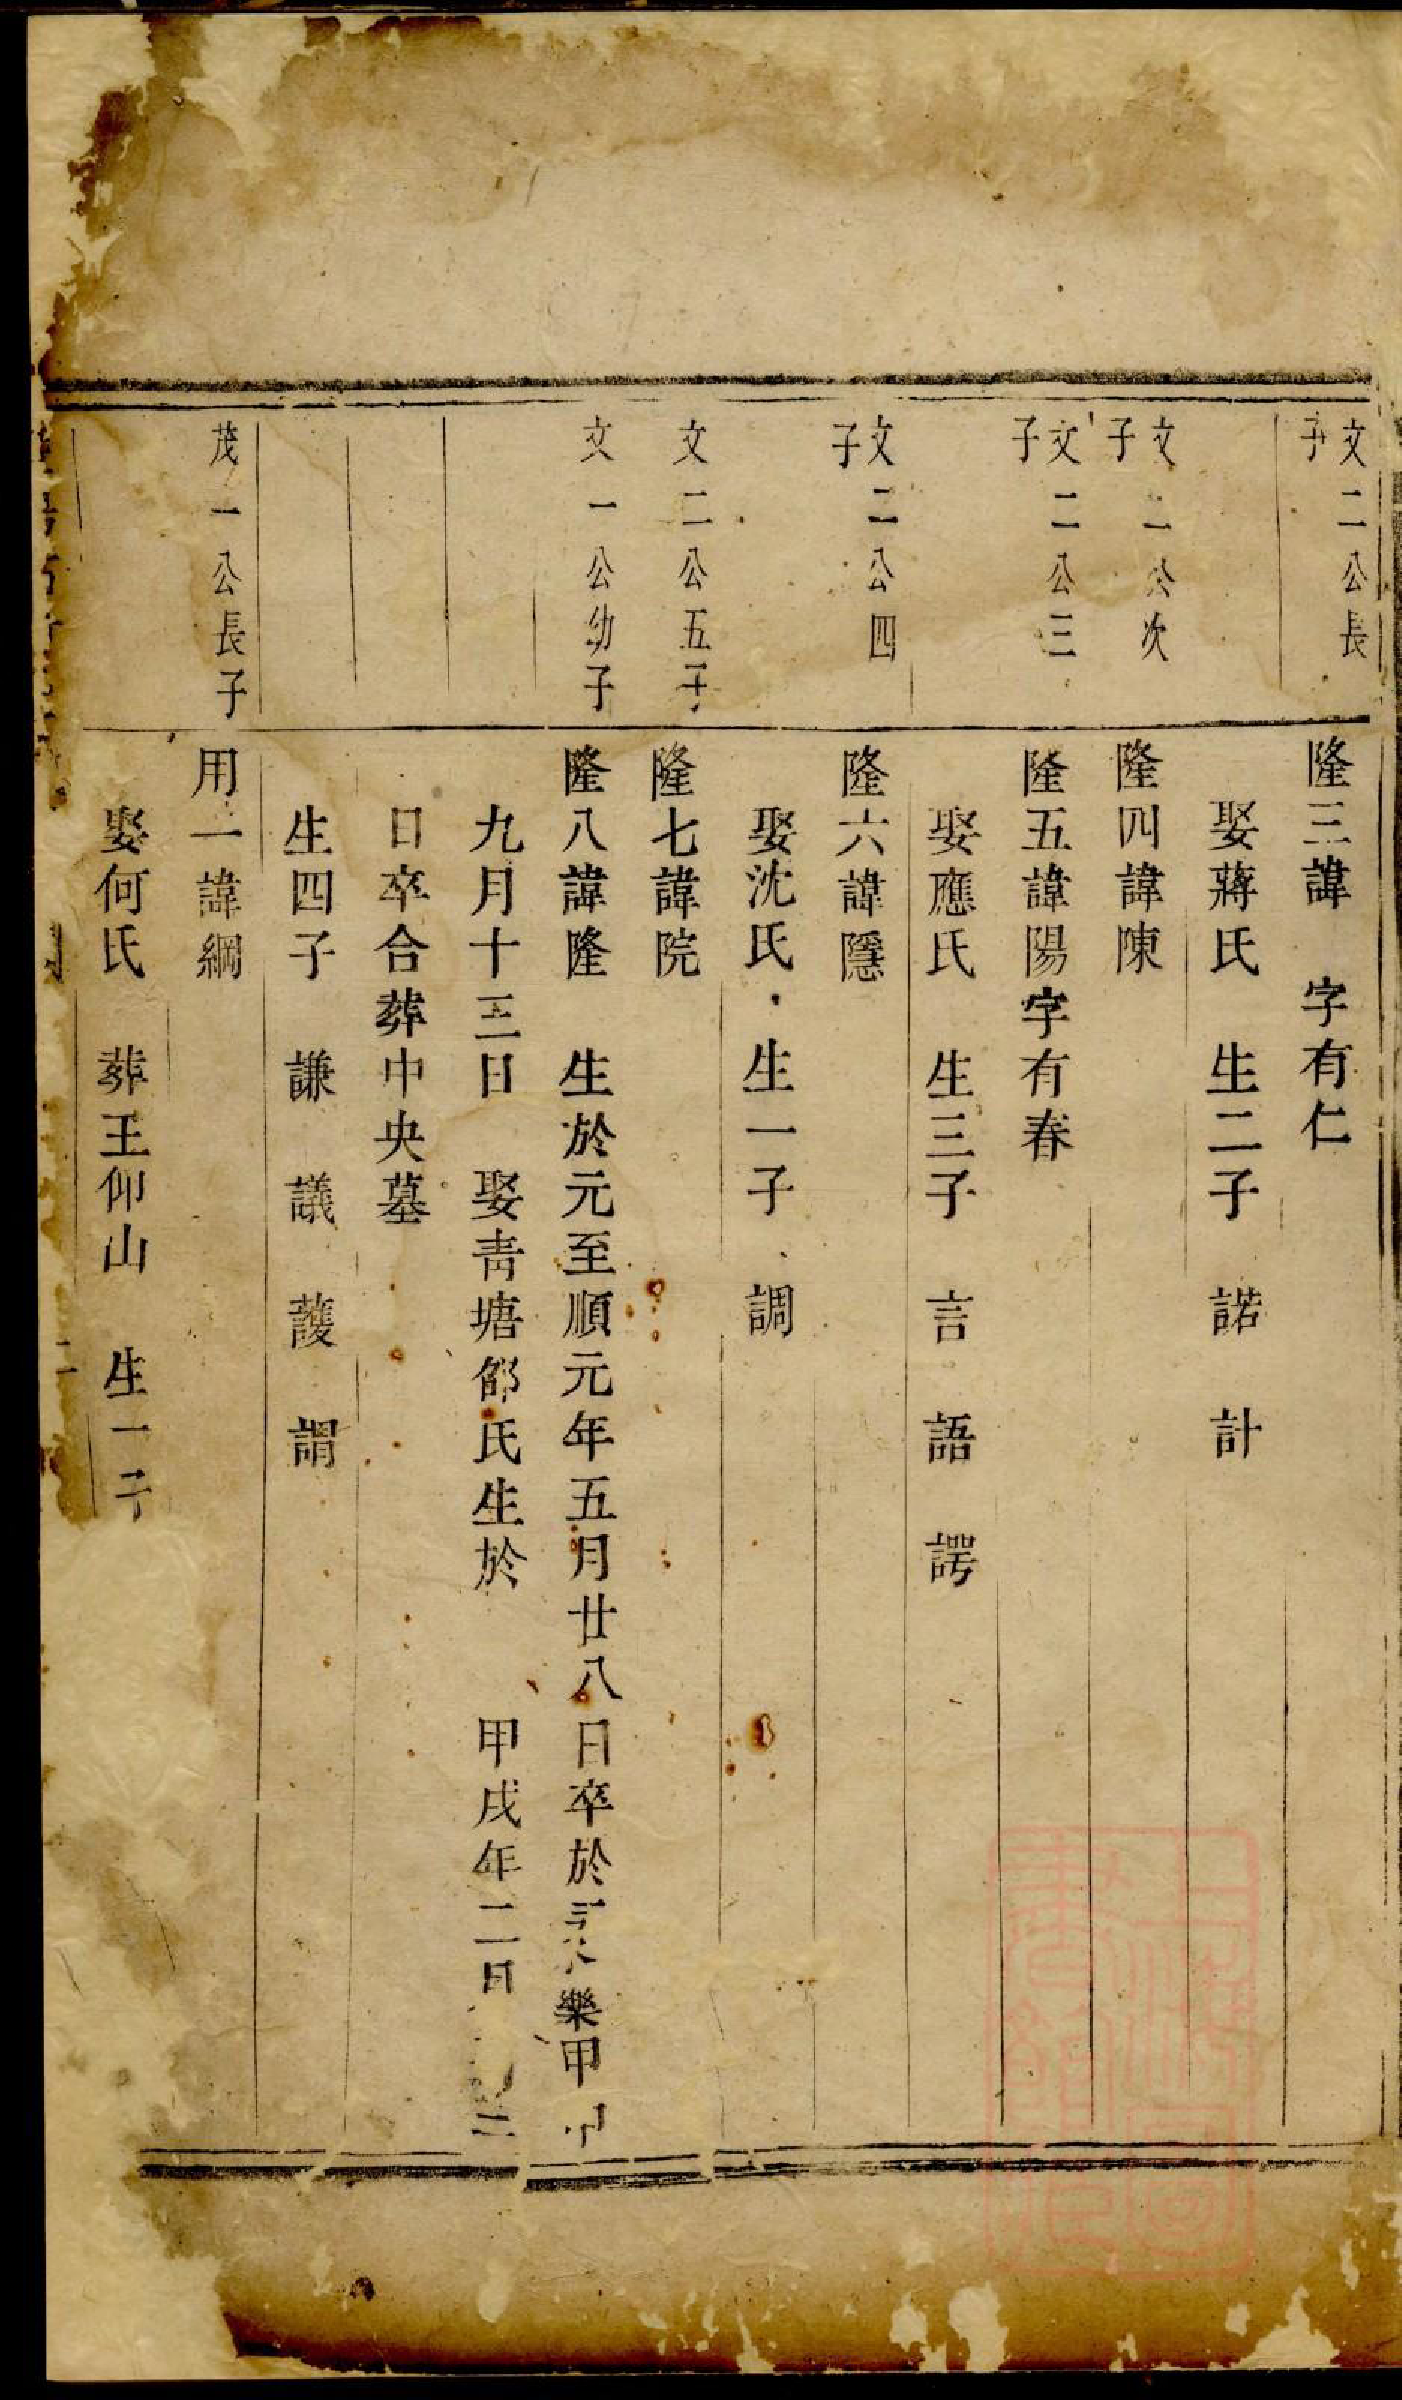 文二公長
子
隆三諱　字有仁
娶蔣氏　生二子　諾　計
文二公次
子
隆四諱陳
文二公三
子
隆五諱陽字有春
娶應氏　生三子　言　語　諤
文二公四
子
隆六諱隱
娶沈氏　生一子　調
文二公五子
隆七諱院
文一公幼子
隆八諱隆　生於元至順元年五月廿八日卒於永樂甲申
九月十三日　娶青塘邵氏生於　甲戌年二月
日卒合葬中央墓
生四子　謙　議　護　謂
茂一公長子
用一諱綱
娶何氏　葬王仰山　生一子